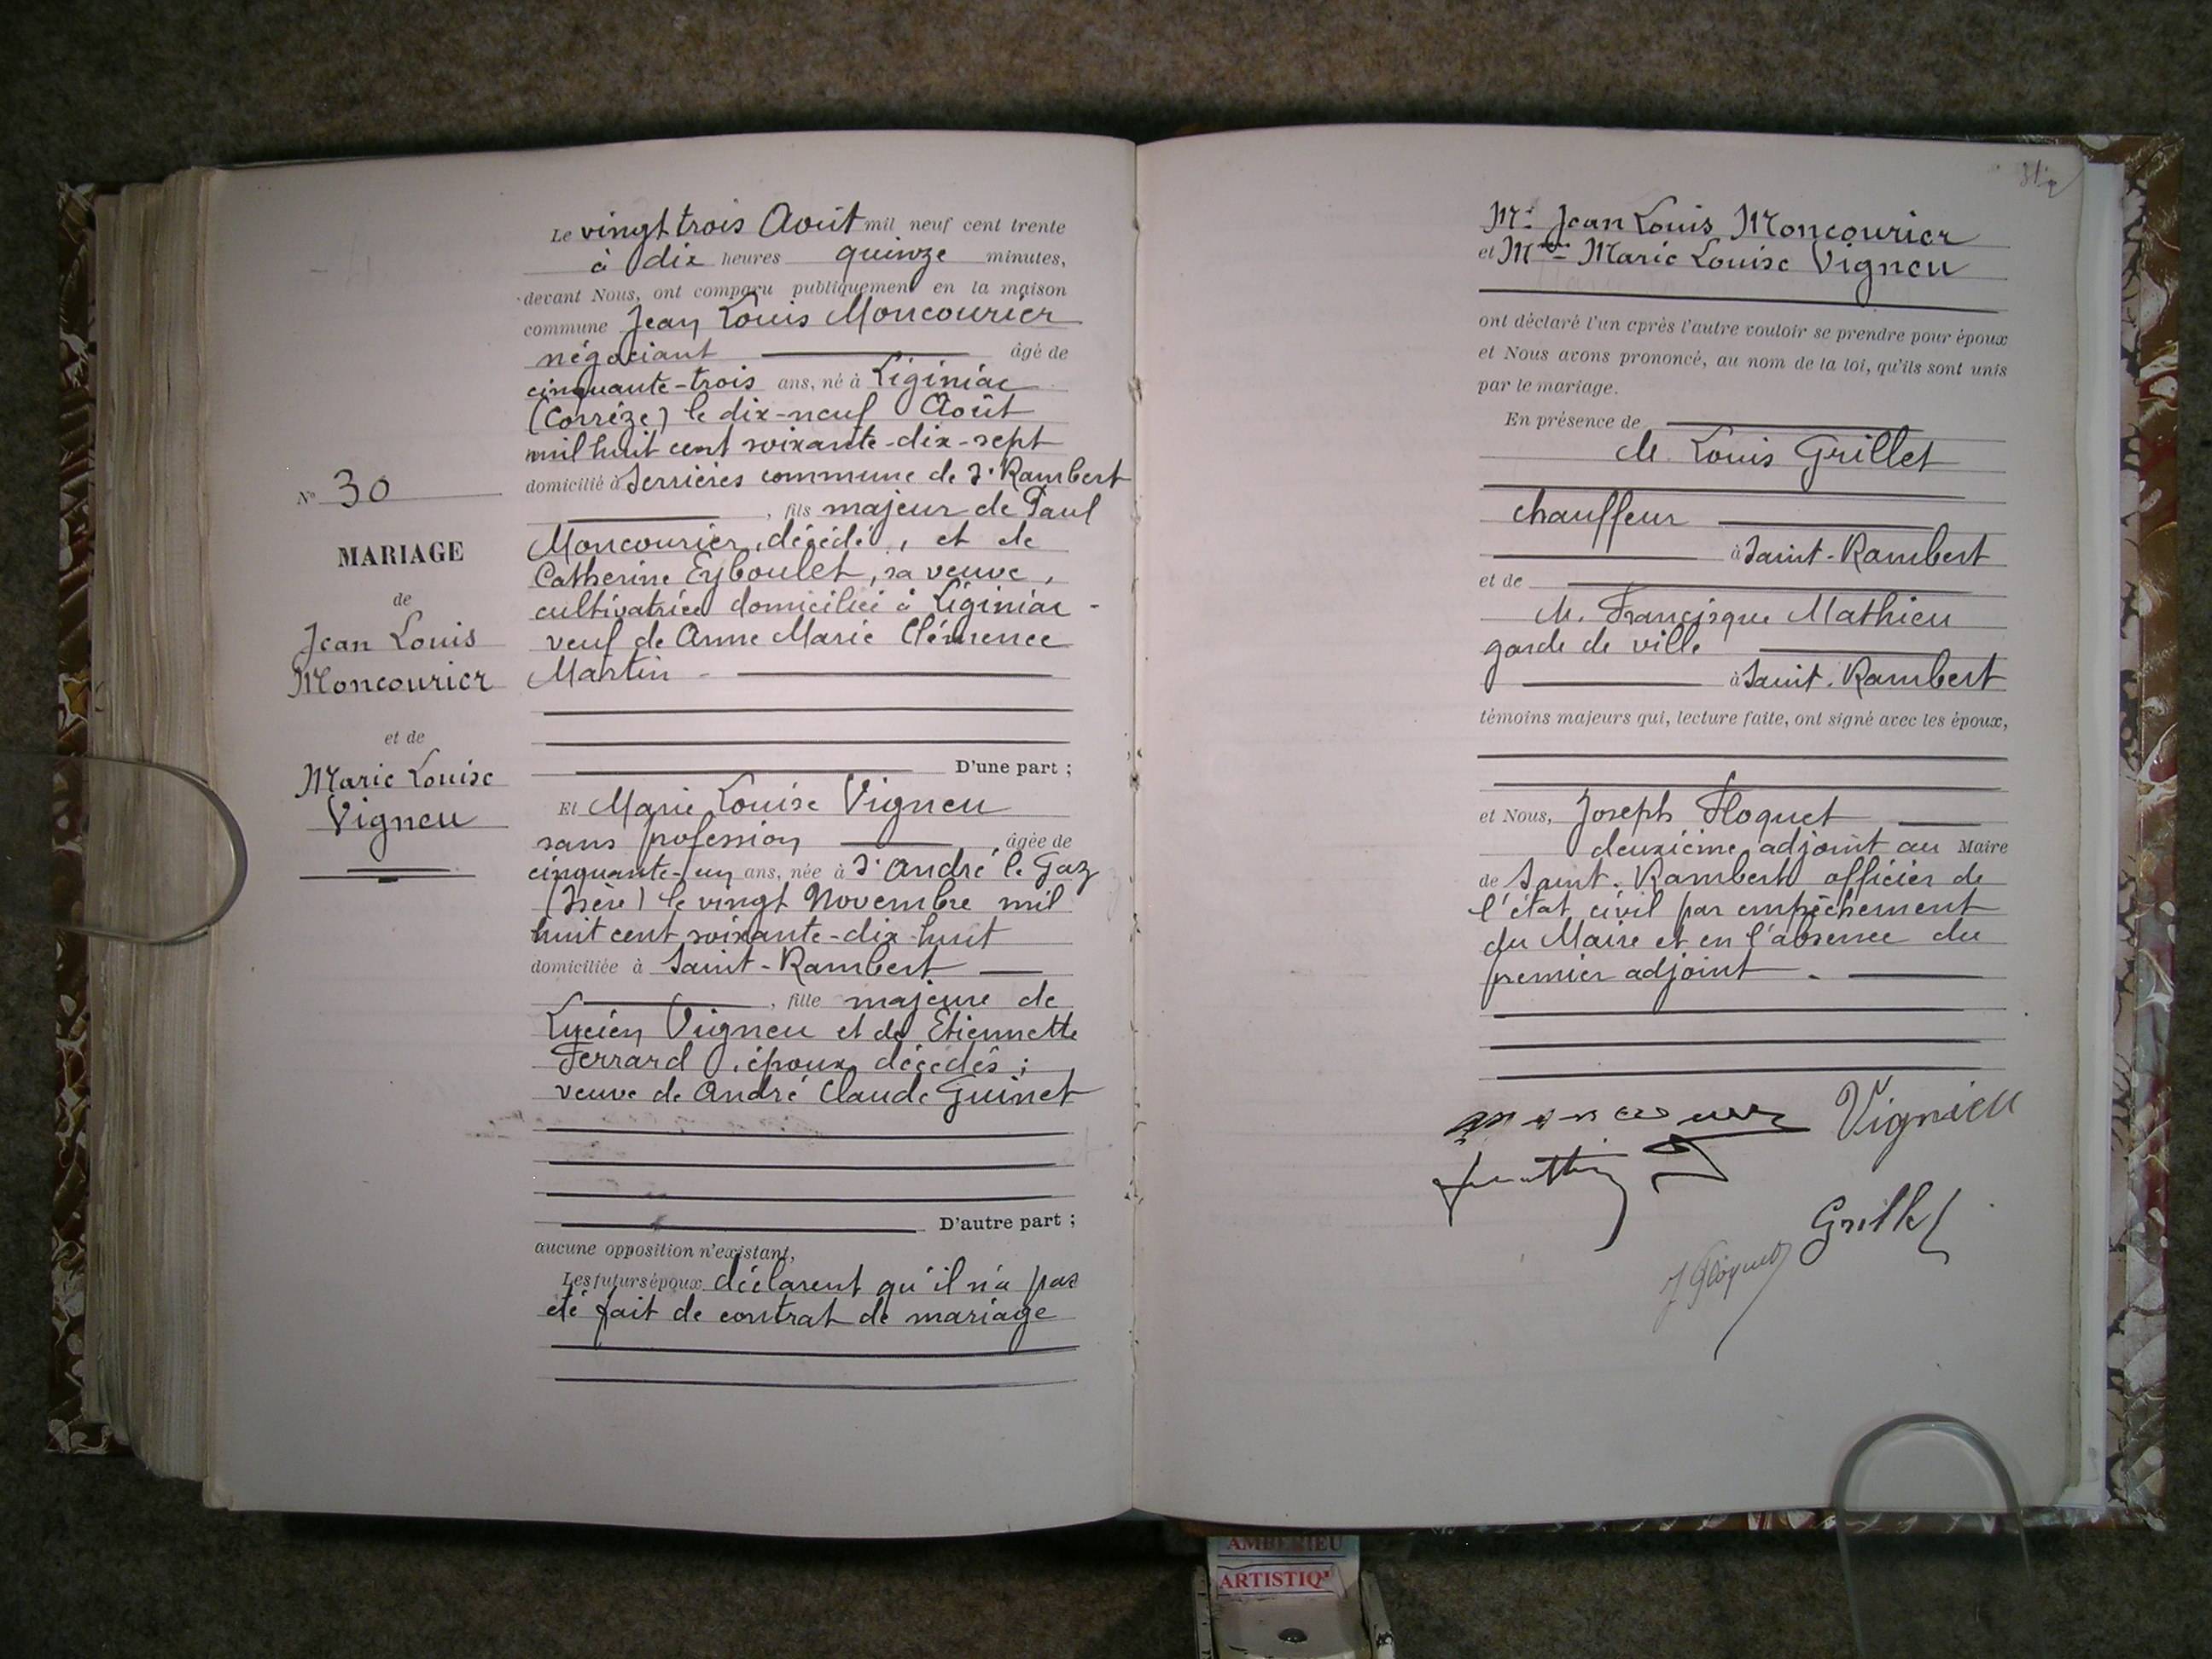 Le vingt trois Août mil neuf cent trente
à dix heures quinze minutes,
devant Nous, ont comparu publiquement en la maison
commune Jean Louis Moncourier
négociant âgé de
cinquante-trois ans, né à Liginiac
(Corrèze) le dix-neuf Août
mil huit cent soixante-dix-sept
domicilié à Serrières commune de St Rambert
, fils majeur de Paul
Moncourier, décédé, et de
Catherine Eyboulet, sa veuve,
cultivatrice domiciliée à Liginiac -
veuf de Anne Marie Clémence
Martin -
D'une part ;
N° 30
MARIAGE
de
Jean Louis
Moncourier
et de
Marie Louise
Vigneu
Et Marie Louise Vigneu
sans profession , âgée de
cinquante-un ans, née à St André le Gaz
(Isère) le vingt Novembre mil
huit cent soixante-dix-huit
domiciliée à Saint-Rambert
, fille majeure de
Lucien Vigneu et de Etiennette
Ferrard, époux décédés ;
veuve de André Claude Guinet
D'autre part ;
aucune opposition n'existant,
Les futurs époux déclarent qu'il n'a pas
été fait de contrat de mariage
Mr Jean Louis Moncourier
et Mme Marie Louise Vigneu
ont déclaré l'un après l'autre vouloir se prendre pour époux
et Nous avons prononcé, au nom de la loi, qu'ils sont unis
par le mariage.
En présence de
M. Louis Grillet
chauffeur
à Saint-Rambert
et de
M. Francisque Mathieu
garde de ville
à Saint-Rambert
témoins majeurs qui, lecture faite, ont signé avec les époux,
et Nous, Joseph Floquet
deuxième adjoint au Maire
de Saint-Rambert officier de
l'état civil par empêchement
du Maire et en l'absence du
premier adjoint.
Vignieu
Grillet
J Floquet
AMBERIEU
ARTISTIQ